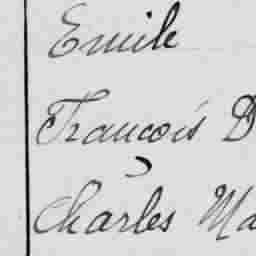 Emile
François D
Charles Ma